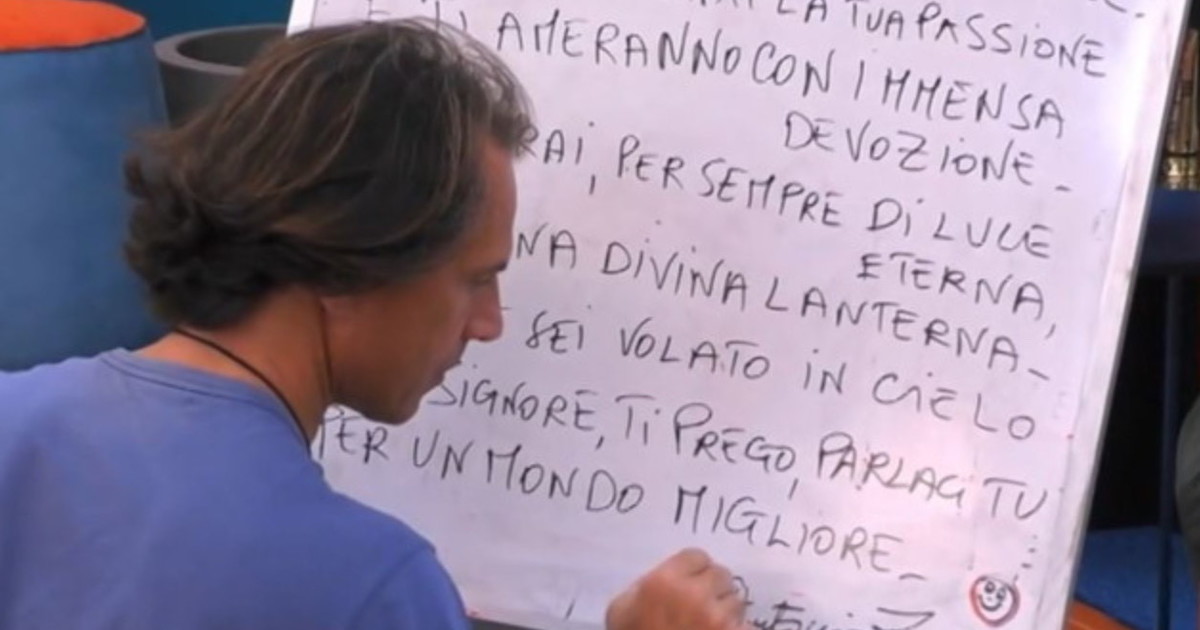 LA TUA PASSIONE
E TI AMERANNO CON IMMENSA
DEVOZIONE -
RAI, PER SEMPRE DI LUCE
ETERNA,
NA DIVINA LANTERNA -
SEI VOLATO IN CIELO
SIGNORE, TI PREGO, PARLACI TU
PER UN MONDO MIGLIORE -